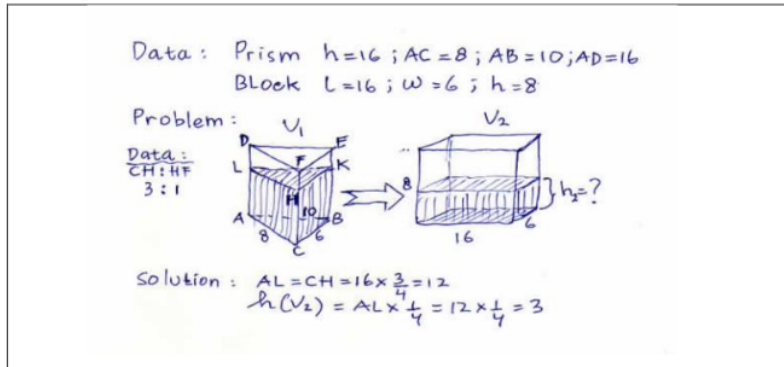 Data : Prism h=16 ; AC=8 ; AB=10 ; AD=16
Block l=16 ; W=6 ; h=8
Problem :
V₁
V₂
Data :
CH : HF
3 : 1
D
E
F
L
K
H
A
10
B
8
6
C
8
h₂=?
16
6
Solution : AL=CH=16×3/4=12
h(V₂) = AL×1/4 = 12×1/4 = 3